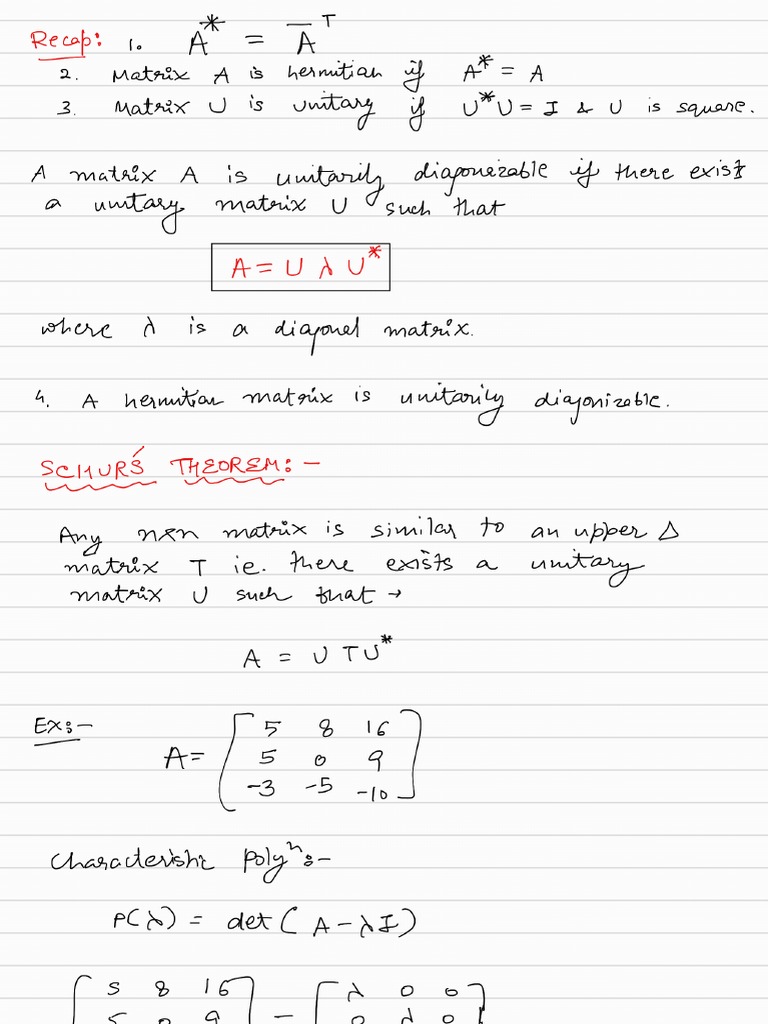 Recap: 1. A* = A̅ᵀ
2. Matrix A is hermitian if A* = A
3. Matrix U is unitary if U*U = I & U is square.
A matrix A is unitarily diagonizable if there exist
a unitary matrix U such that
A = U λ U*
where λ is a diagonal matrix.
4. A hermitian matrix is unitarily diagonizable.
SCHUR'S THEOREM:-
Any n×n matrix is similar to an upper Δ
matrix T ie. there exists a unitary
matrix U such that →
A = U T U*
Ex:-
A = [ 5 8 16
5 0 9
-3 -5 -10 ]
Characteristic polyⁿ:-
P(λ) = det ( A - λI )
[ 5 8 16 ] - [ λ 0 0 ]
5 0 9 0 λ 0